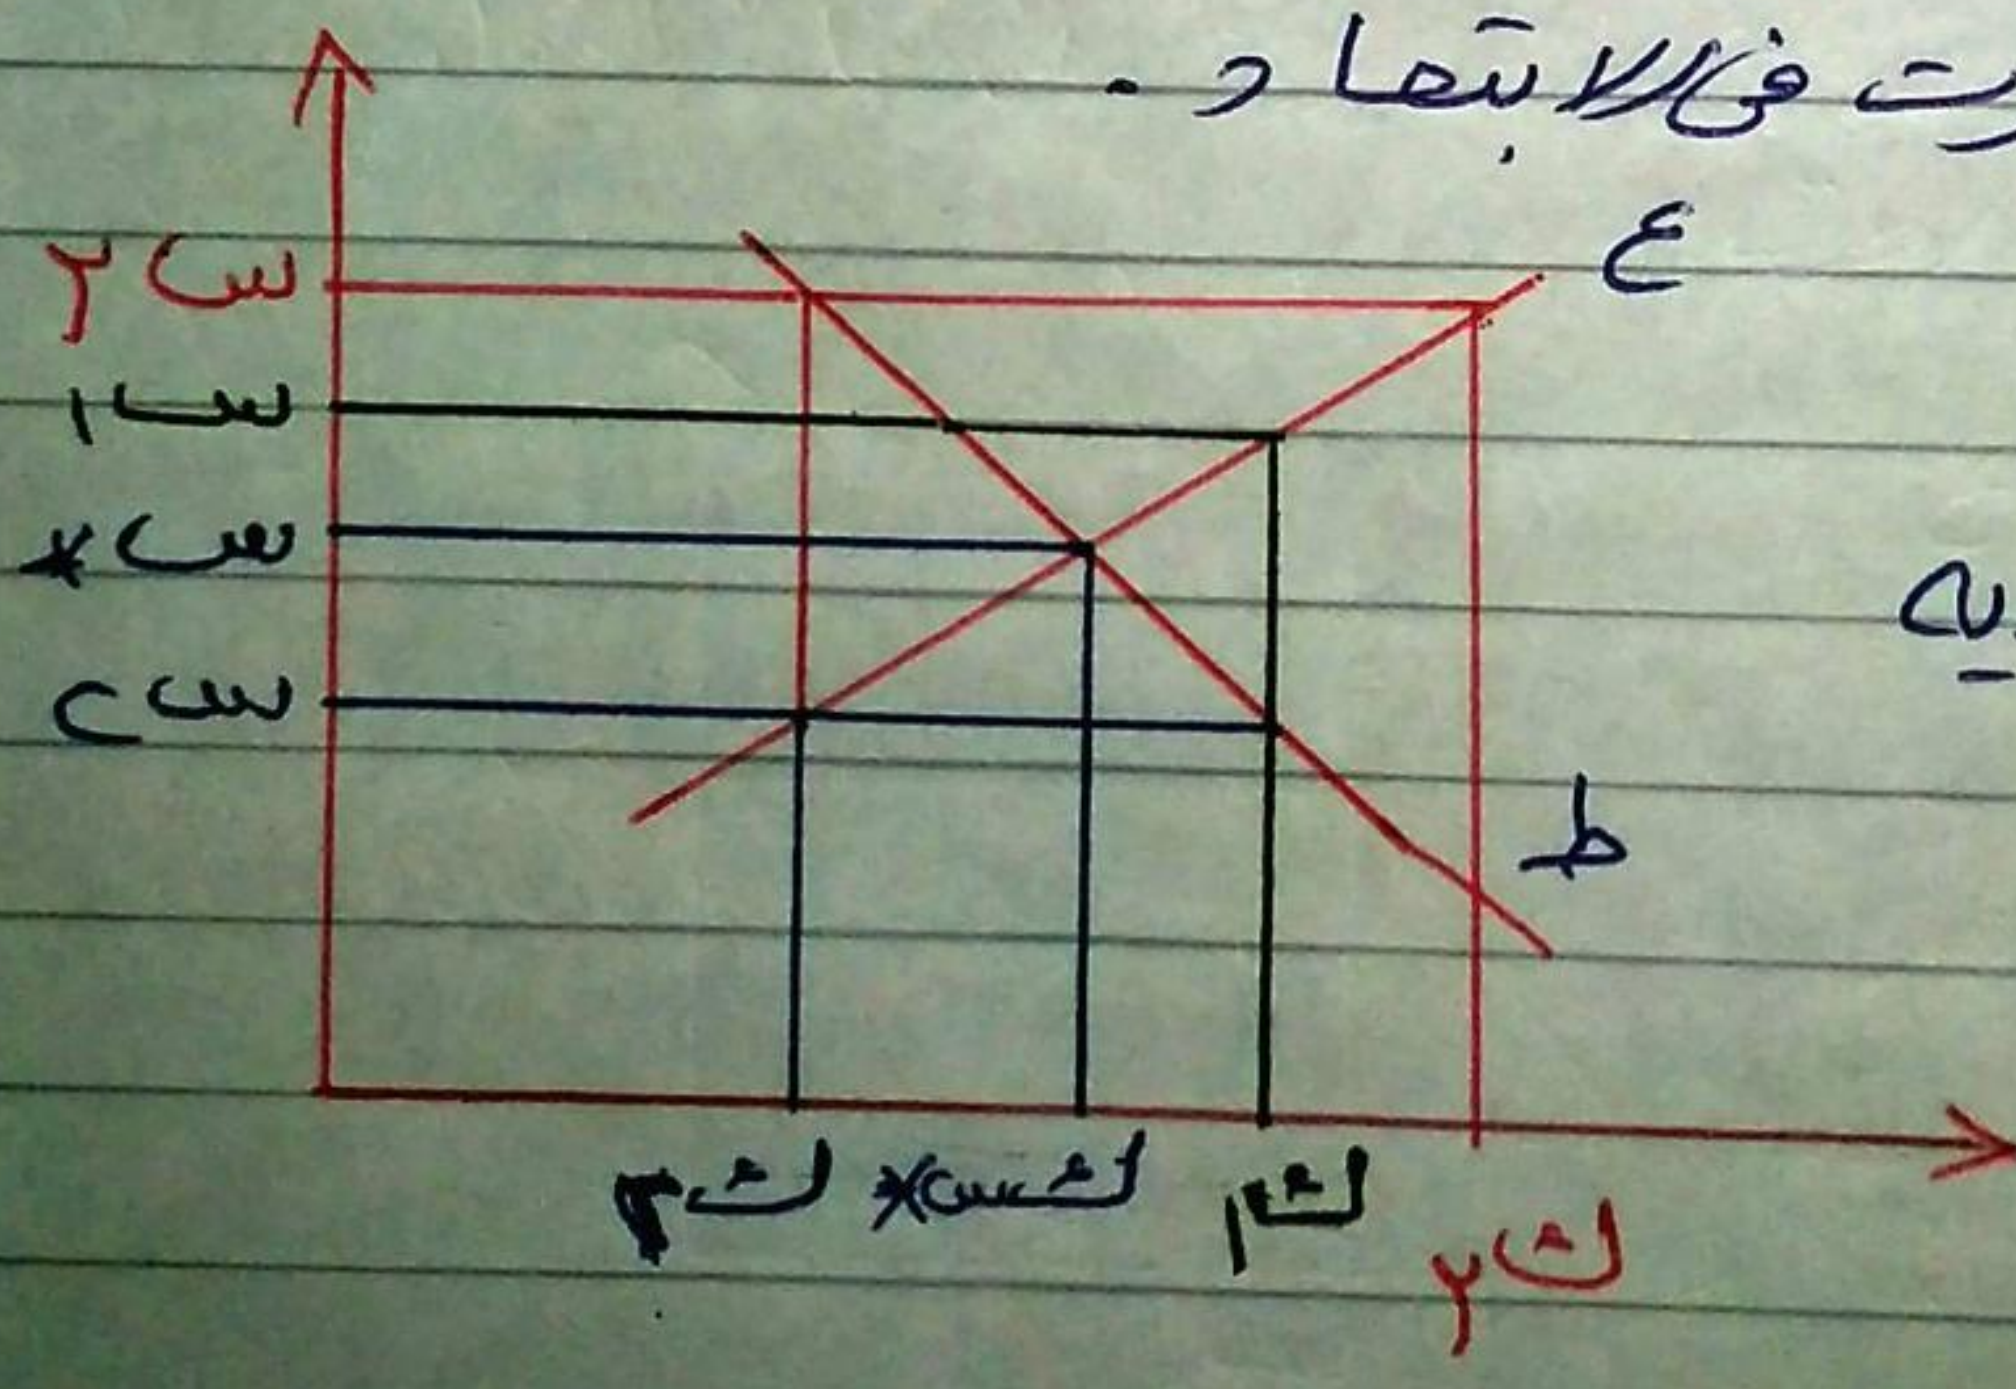 ت فى الابتعاد .
ع
س ٢
س ١
س *
س ح
ط
ك ٣ ك س* ك ١ ك ٢